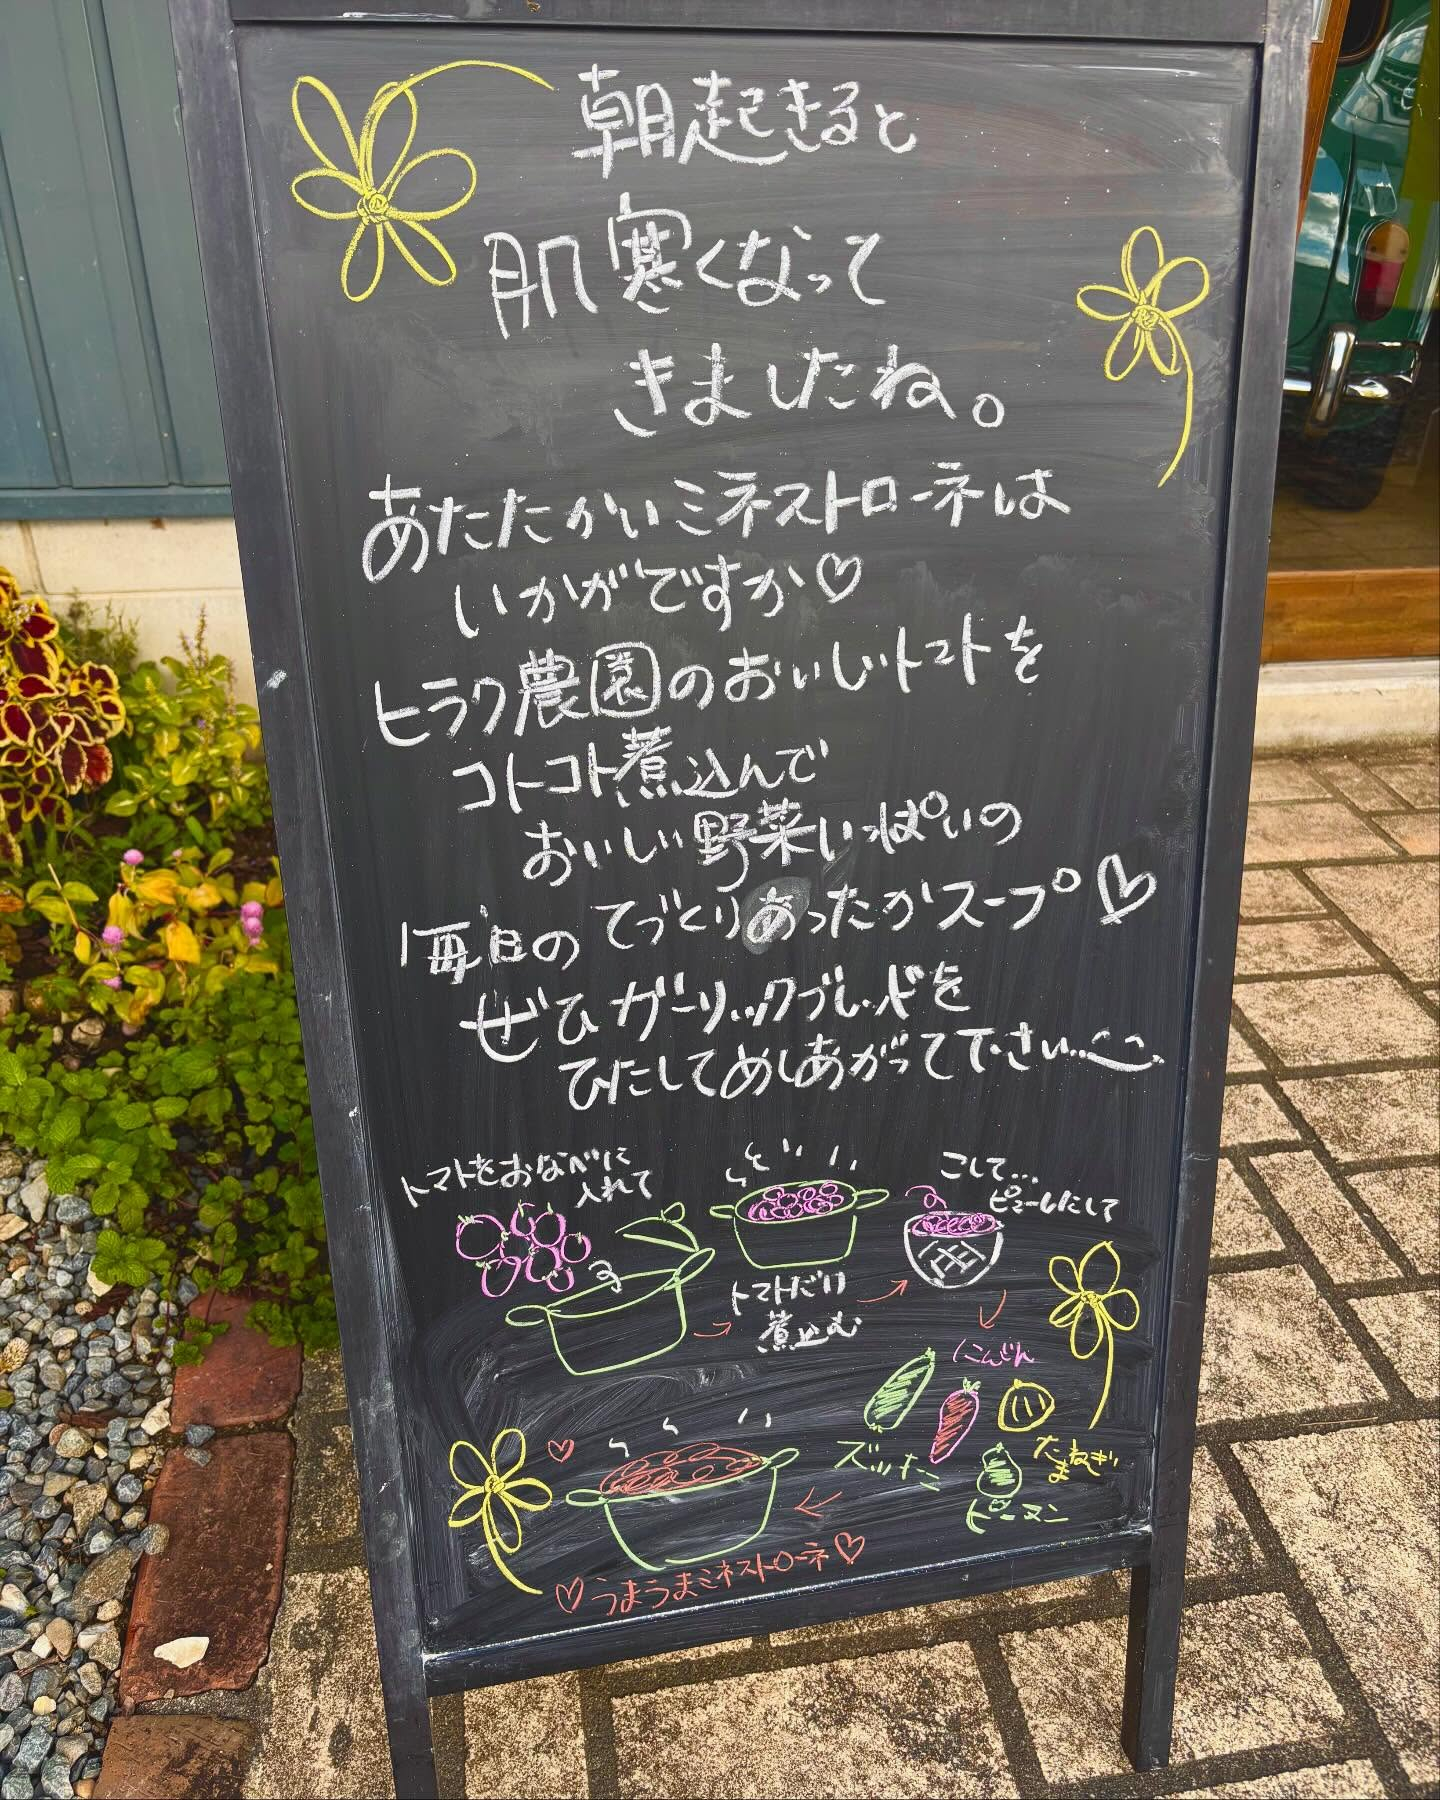 朝起きると
肌寒くなって
きましたね。
あたたかいミネストローネは
いかがですか♡
ヒラク農園のおいしいトマトを
コトコト煮込んで
おいしい野菜いっぱいの
毎日のてづくりあったかスープ♡
ぜひガーリックブレッドを
ひたしてめしあがって下さい…
トマトをおなべに
入れて
トマトだけ
煮込む
こして…
ピューレにして
にんじん
ズッキーニ
たまねぎ
ピーマン
♡うまうまミネストローネ♡